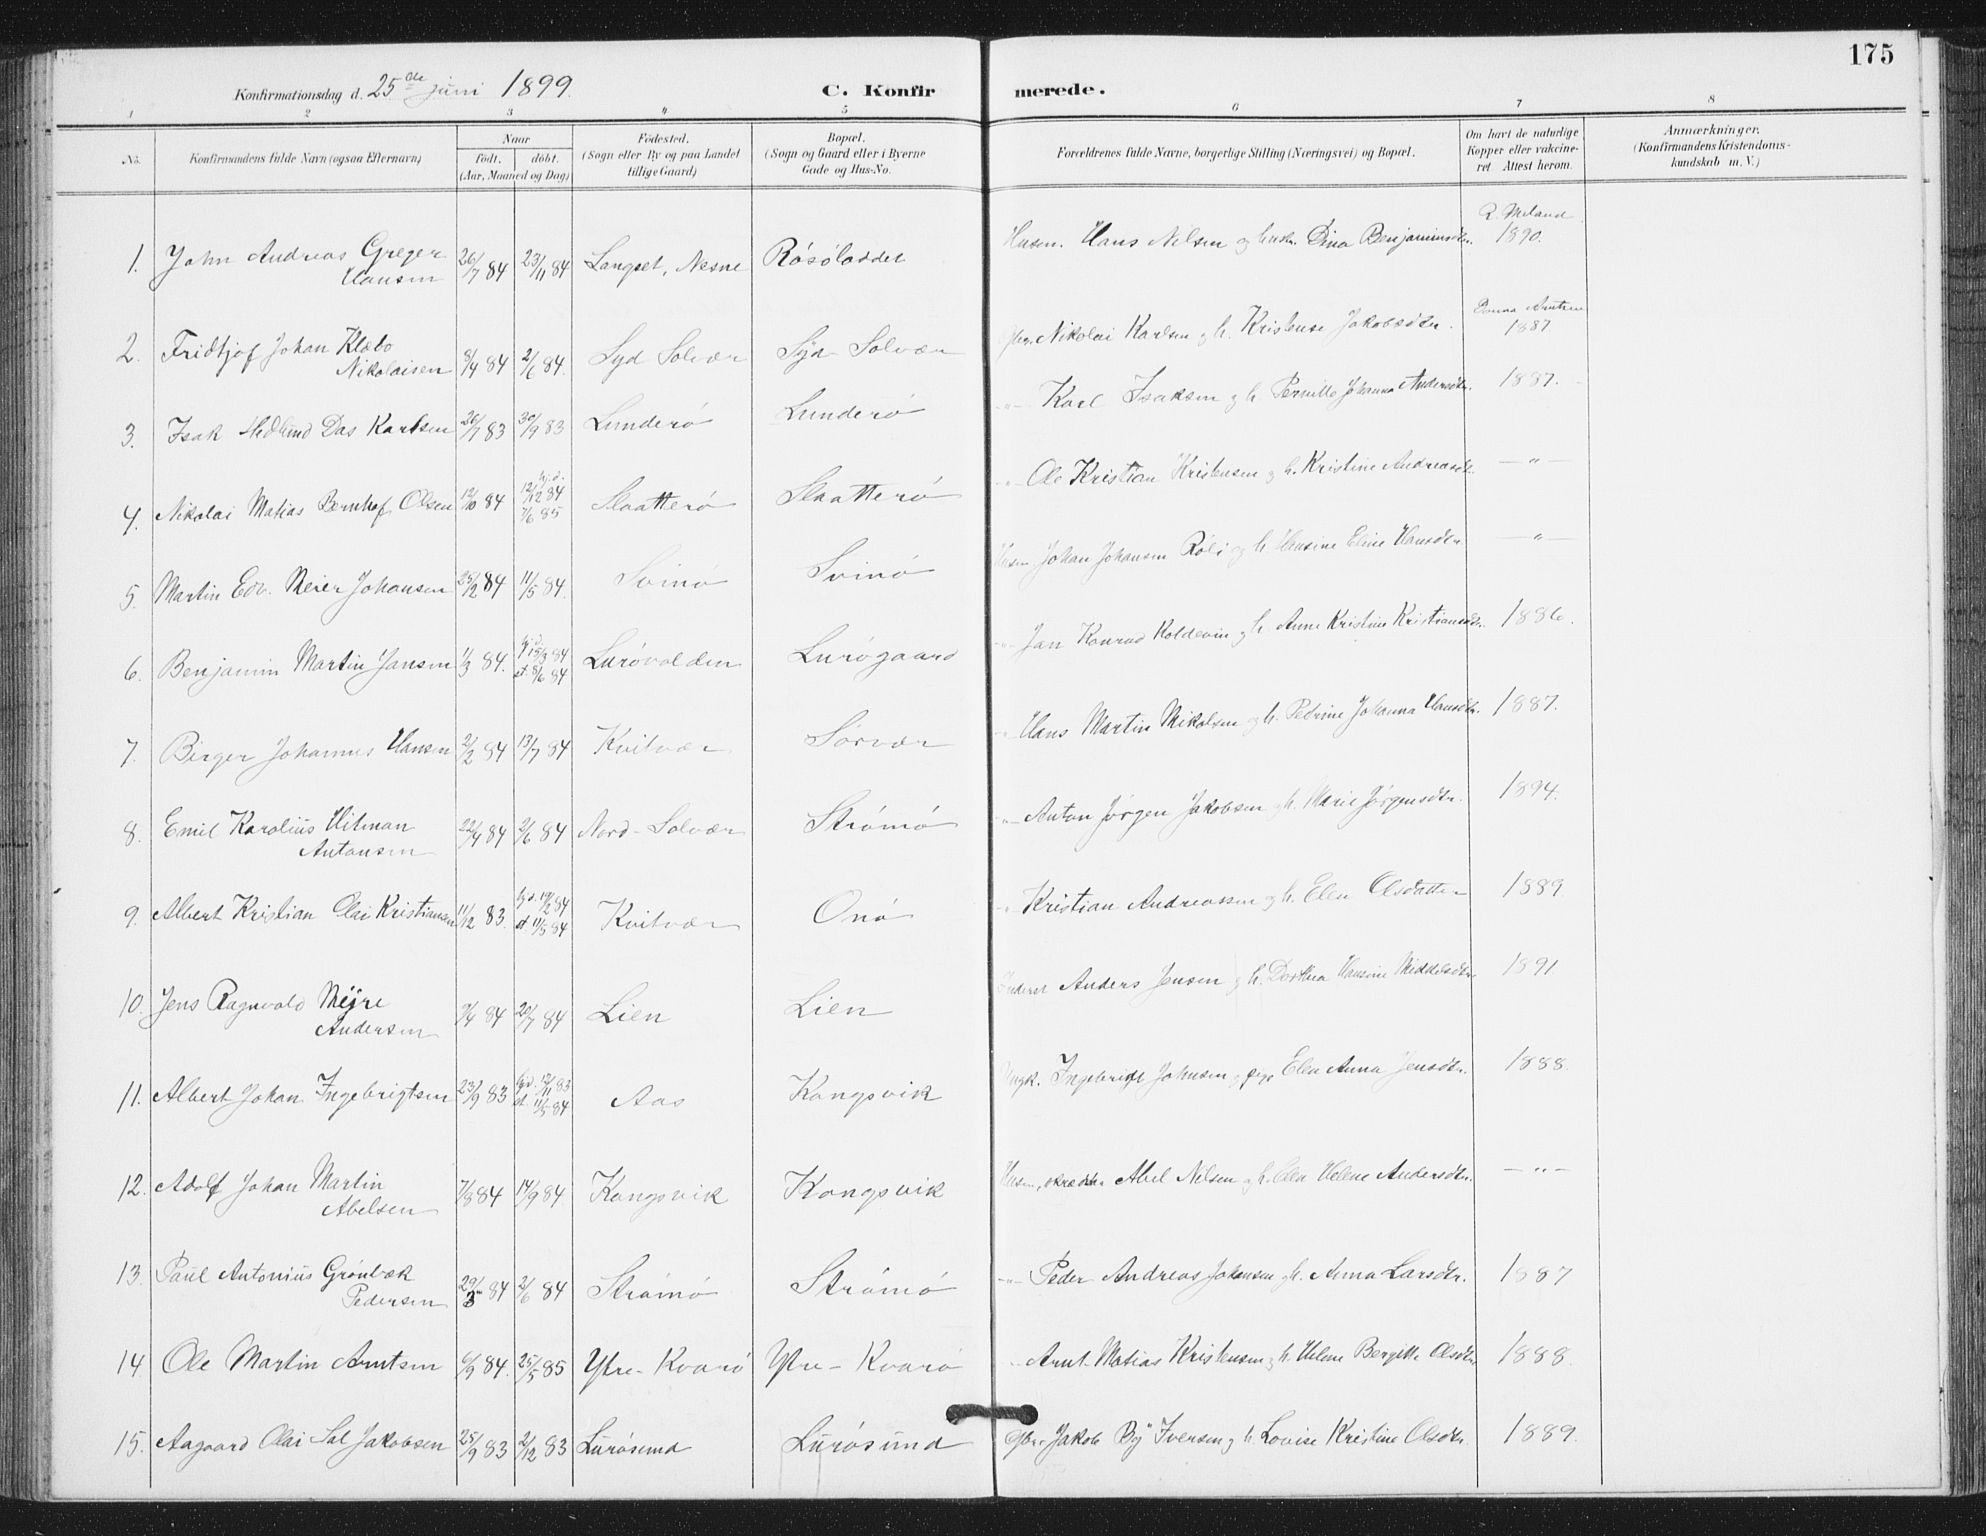 175
Konfirmationsdag d. 25de juni 1899. C. Konfirmerede.
1 2 3 4 5 6 7 8
No. Konfirmandens fulde Navn (ogsaa Efternavn) Naar födt. döbt. (Aar, Maaned og Dag) Födested. (Sogn eller By og paa Landet tillige Gaard) Bopæl. (Sogn og Gaard eller i Byerne Gade og Hus-No. Forældrenes fulde Navne, borgerlige Stilling (Næringsvei) og Bopæl. Om havt de naturlige Kopper eller vakcineret. Attest herom. Anmærkninger. (Konfirmandens Kristendomskundskab m. V.)
1. John Andreas Greger Hansen 26/7 84 23/11 84 Langset, Nesne Husm. Hans Nilsen og hustr. Dina Benjaminsdtr. 1890.
2. Fridtjof Johan Klæbo Nikolaisen 8/4 84 2/6 84. Syd Solvær Syd Solvær Nikolai Karlsen og h. Kristense Jakobsdtr. 1887
3. Isak Hedlund Das Karlsen 26/7 83 30/9 83 Lunderö Lunderö -"- Karl Isaksen og h. Pernille Johanna Andersdtr. 1887.
4. Nikolai Matias Bernhof Olsen 12/10 84 hj.d. 12/12 84 7/6 85 Slaatterö Slaatterö -"- Ole Kristian Kristensen og h. Kristine Andreasdtr. -"-
5. Martin Edv. Meier Johansen 25/2 84 11/5 84. Svinö Svinö Husm Johan Johansen Röli og h. Hansine Eline Hansdtr. -"-
6. Benjamin Martin Jansen 1/3 84. st. 8/6 84 Lurövolden Lurögaard -"- Jan Konrad Koldevin og h. Anne Kristine Kristiansdtr. 1886.
7. Birger Johannes Hansen 2/2 84 13/7 84 Kvitvær Sörvær -"- Hans Martin Nikolsen og h. Petrine Johanna Hansdtr. 1887.
8. Emil Karolius Hitman Antonsen 22/4 84 2/6 84 Nord-Solvær Strömö -"- Anton Jörgen Jakobsen og h. Marie Jörgensdtr. 1894.
9. Albert Kristian Olai Kristiansen 11/12 83. hj.d. 19/2 84 st. 11/5 84 Kvitvær Onö -"- Kristian Andreassen og h. Elen Olsdatter 1889.
10. Jens Ragnvald Mejre Andersen 9/4 84 20/7 84 Lien Lien Inderst Anders Jensen og h. Dorthea Hansine Middelsdtr. 1891
11. Albert Johan Ingebrigtsen 23/9 83 hj.d. 12/11 83 st. 11/5 84 Aas Kongsvik Ungk. Ingebrigt Johnsen og pige Elen Anna Jensdtr. 1888.
12. Adolf Johan Martin Abelsen 7/8 84 14/9 84. Kongsvik Kongsvik Husm, skrædder Abel Nilsen og h. Elen Helene Andersdtr. -"-
13. Paul Antonius Grönbæk Pedersen 29/3 84 2/6 84 Strömö Strömö -"- Peder Andreas Johansen og h. Anna Larsdtr. 1887
14. Ole Martin Arntsen 6/9 84. 25/5 85 Ytre-Kvarö Ytre-Kvarö -"- Arnt Matias Kristensen og h. Helene Bergitte Olsdtr. 1888.
15. Aagaard Olai Sal Jakobsen 25/9 83 2/12 83 Lurösund Lurösund Gbr. Jakob By Iversen og h. Lovise Kristine Olsdtr. 1889.